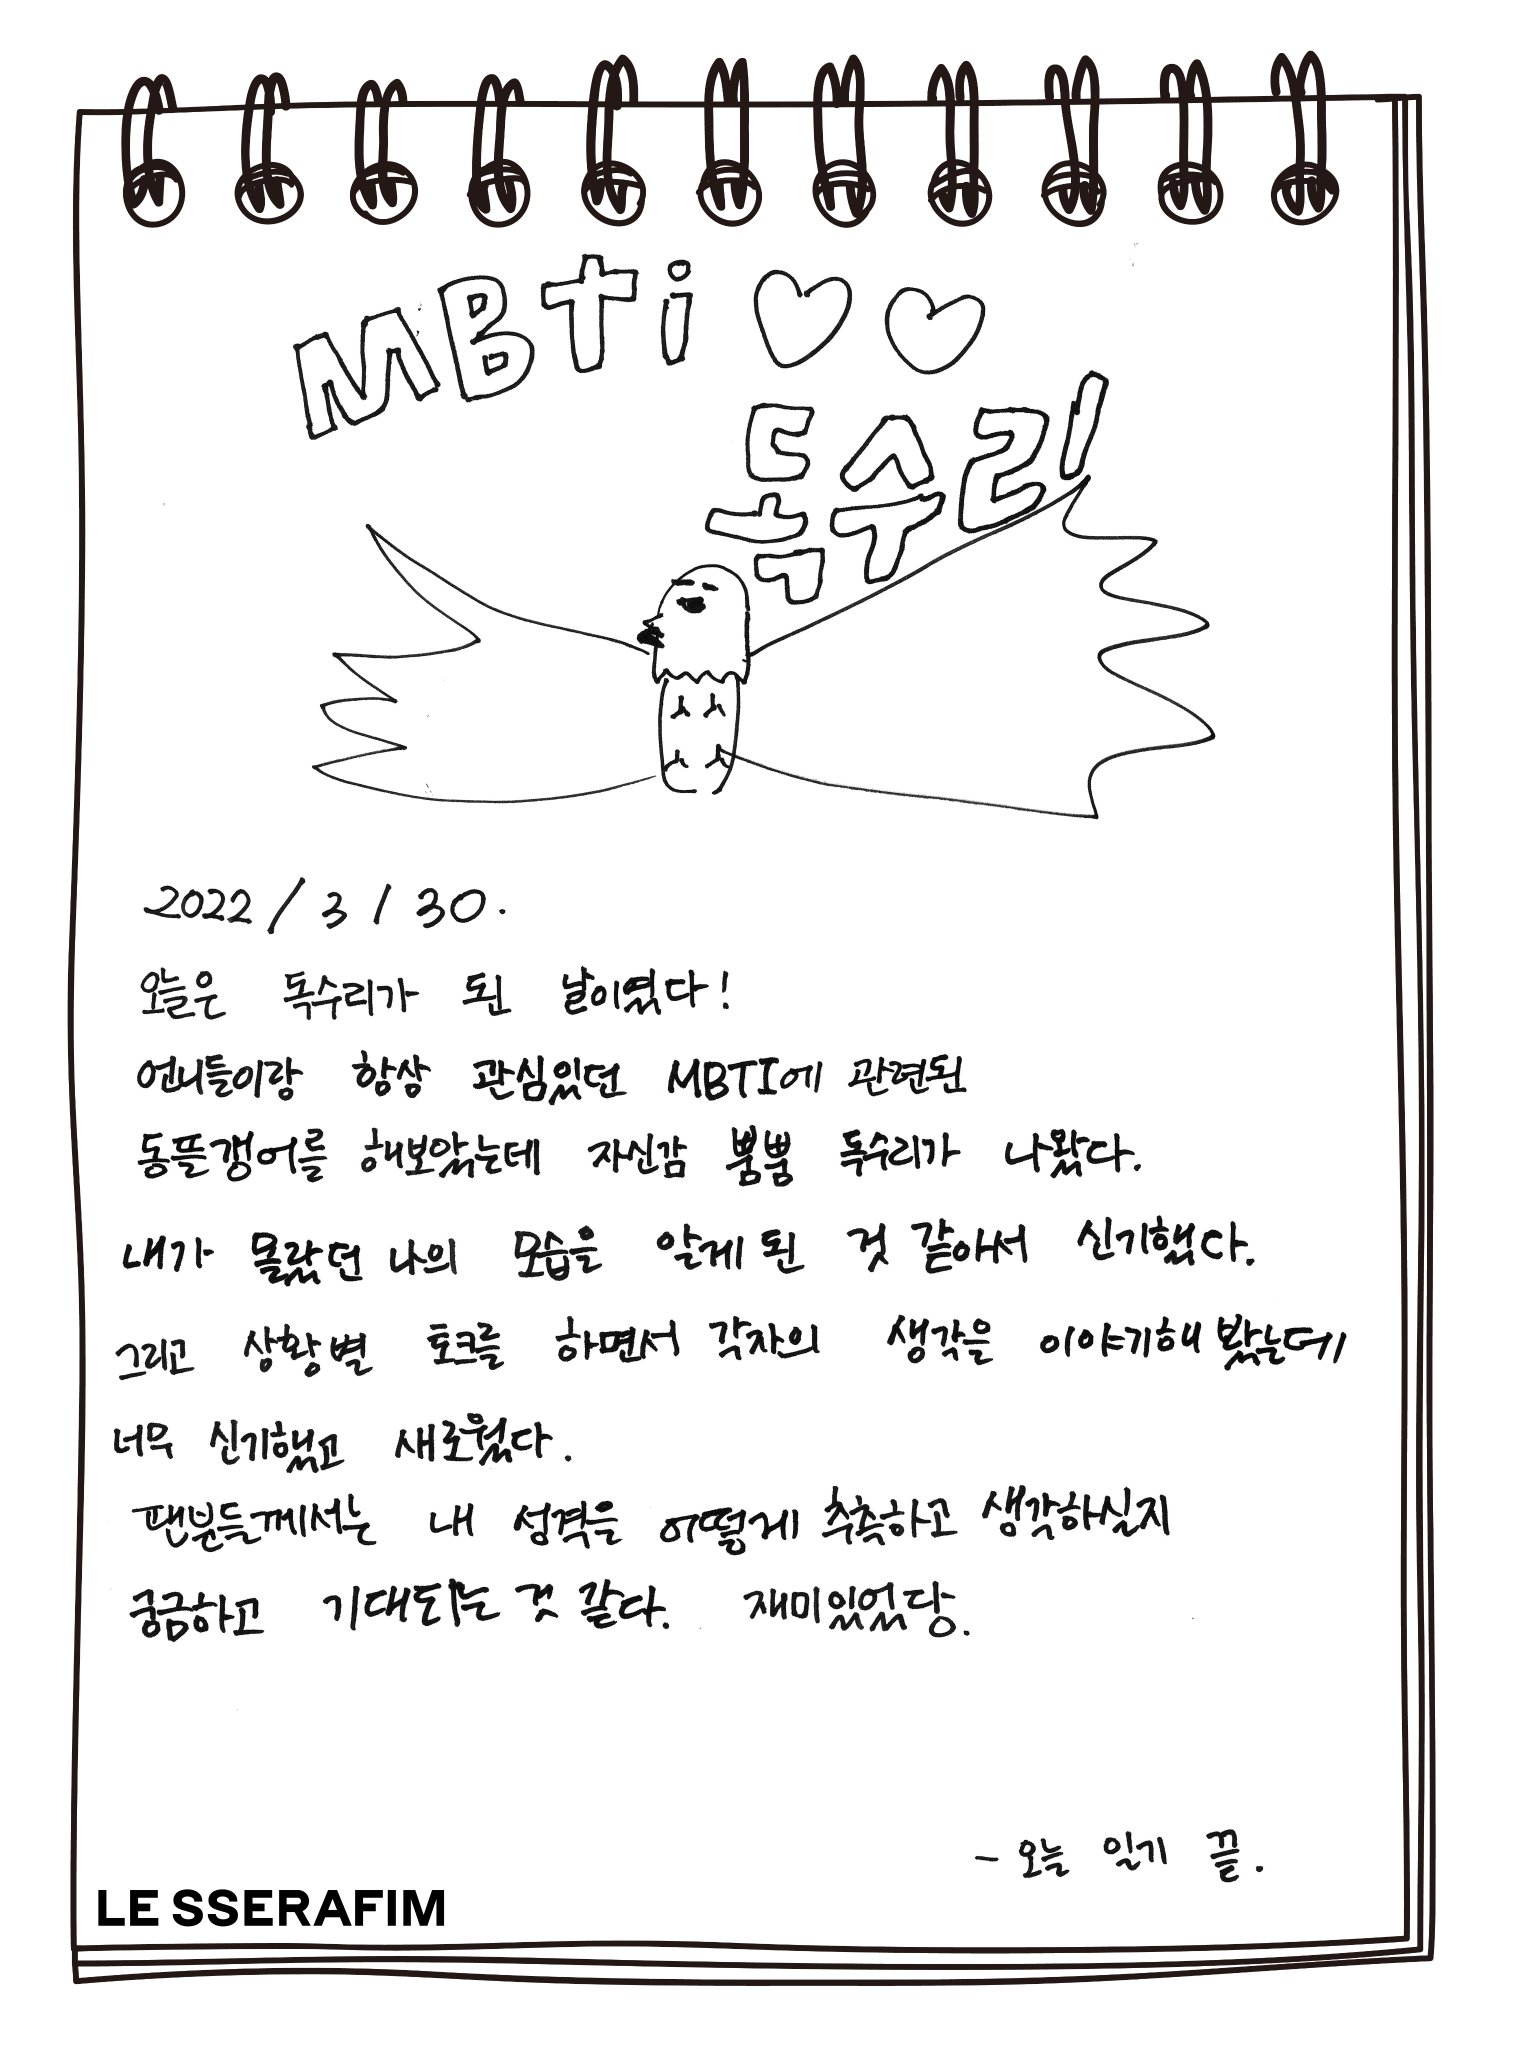 MBTi ♡♡
독수리
2022 / 3 / 30.
오늘은 독수리가 된 날이였다!
언니들이랑 항상 관심있던 MBTI에 관련된
동뜰갱어를 해보았는데 자신감 뿜뿜 독수리가 나왔다.
내가 몰랐던 나의 모습을 알게 된 것 같아서 신기했다.
그리고 상황별 토크를 하면서 각자의 생각을 이야기해 봤는데
너무 신기했고 새로웠다.
팬분들께서는 내 성격을 어떻게 추측하고 생각하실지
궁금하고 기대되는 것 같다. 재미있었당.
- 오늘 일기 끝.
LE SSERAFIM